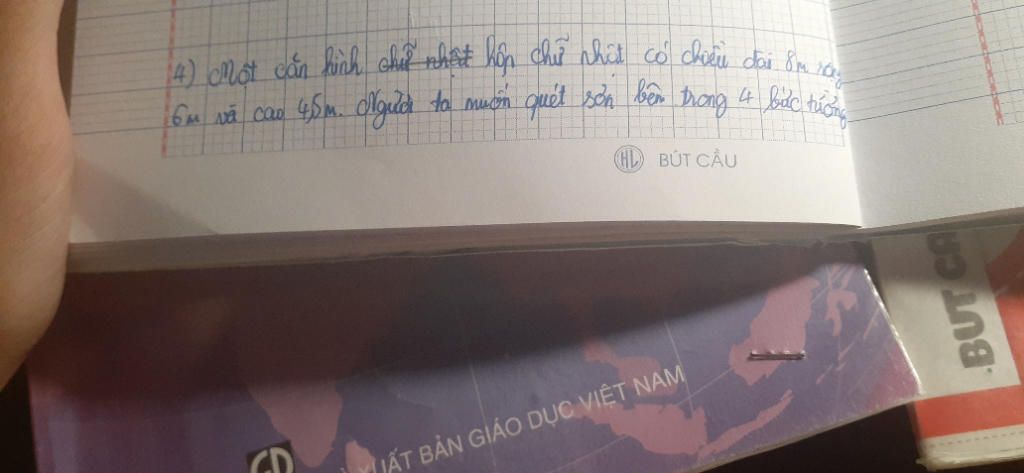 4) Một căn hình chữ nhật hộp chữ nhật có chiều dài 8m rộng
6m và cao 4,5m. Người ta muốn quét sơn bên trong 4 bức tường
HL BÚT CẦU
BUT CA
XUẤT BẢN GIÁO DỤC VIỆT NAM
GD